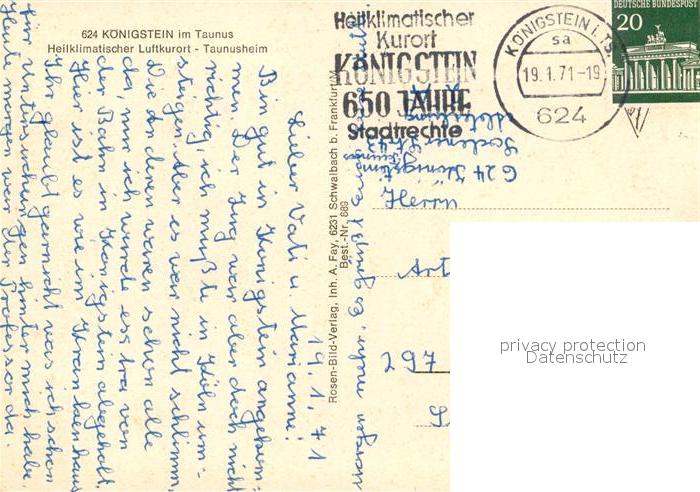 624 KÖNIGSTEIN im Taunus
Heilklimatischer Luftkurort - Taunusheim
Heilklimatischer
Kurort
KÖNIGSTEIN
650 JAHRE
Stadtrechte
KÖNIGSTEIN i. TS.
sa
19.1.71-19
624
DEUTSCHE BUNDESPOST
20
Rosen-Bild-Verlag, Inh. A. Fay, 6231 Schwalbach b. Frankfurt/M.
Best.-Nr. 689
19.1.71
Lieber Vati u. Marianne!
Bin gut in Königstein angekom-
men. Der Zug war aber doch nicht
richtig, ich mußte in Köln um-
steigen. Aber es war nicht schlimm.
Die anderen waren schon alle
da, nur ich wurde extra von
der Bahn in Königstein abgeholt.
Hier ist es wie im Krankenhaus
Ihr glaubt garnicht was ich schon
für Untersuchungen hinter mich habe.
Heute morgen war der Professor da.
morgen mehr. Es grüßt Euch
624 Königstein
Taunus
Herrn
Art
297
privacy protection
Datenschutz